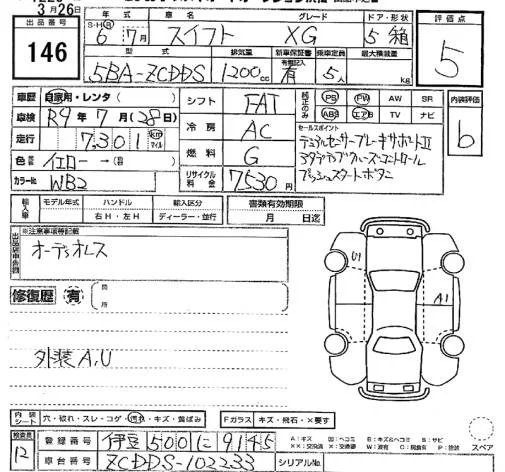 3月26日
出品番号 146
S・H・R 年式 6年 7月
車名 スイフト
グレード XG
ドア・形状 5 箱
評価点 5
型式 5BA-ZCDDS
排気量 1200cc
新車保証書 有
乗車定員 5人
最大積載量 kg
車歴 自家用・レンタ( )
車検 R9年 7月(28日)
走行 7,301 km マイル
色番 イエロー → ( )
カラーNo. WB2
シフト FAT
冷房 AC
燃料 G
リサイクル料金 7530円
純正のみ PS PW AW SR
ABS エアB TV ナビ
内装評価 b
セールスポイント
デュアルセンサーブレーキサポートⅡ
アダプティブクルーズコントロール
プッシュスタートボタン
輸入車 モデル年式 ハンドル 輸入区分
( ) 右H・左H ディーラー・並行
書類有効期限
月 日迄
出品店申告欄
※注意事項等記載
オーディオレス
修復歴 有 箇所
外装A,U
U1
A1
内装シート 穴・破れ・スレ・コゲ・汚れ・キズ・黄ばみ
Fガラス キズ・飛石・×要す
スペア
検査員 12
登録番号 伊豆 500 に 9145
車台番号 ZCDDS-102233
シリアルNo.
A:キズ U:ヘコミ B:キズ&ヘコミ S:サビ
XX:交換済 X:交換要 W:波有 C:腐食有 P:塗装